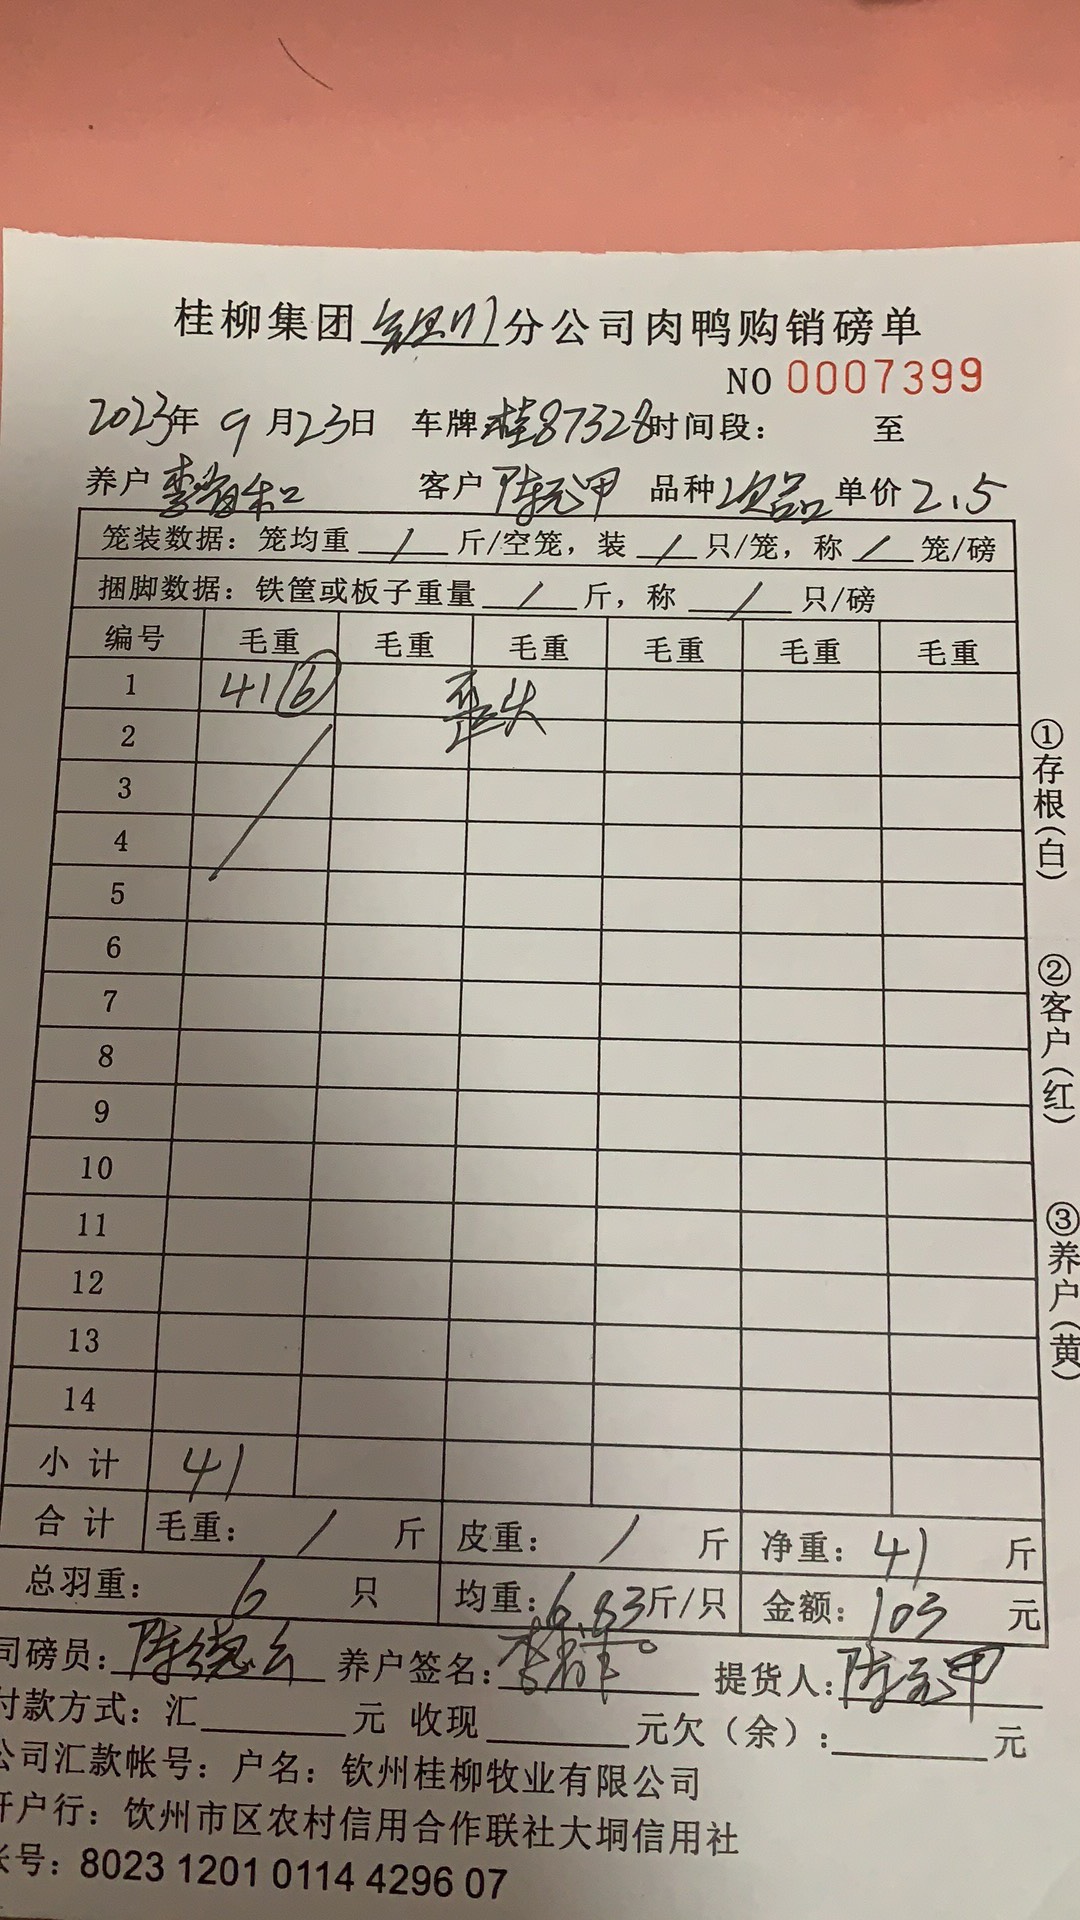 桂柳集团 分公司肉鸭购销磅单
NO 0007399
2023年 9月23日 车牌 桂87328 时间段： 至
养户 客户 陈元甲 品种 次品 单价 2.5
笼装数据：笼均重 / 斤/空笼，装 / 只/笼，称 / 笼/磅
捆脚数据：铁筐或板子重量 / 斤，称 / 只/磅
编号 毛重 毛重 毛重 毛重 毛重 毛重
1 41(6) 歪头
2
3
4
5
6
7
8
9
10
11
12
13
14
小计 41
合计 毛重： / 斤 皮重： / 斤 净重： 41 斤
总羽重： 6 只 均重： 6.83 斤/只 金额： 103 元
司磅员： 陈德云 养户签名： 提货人： 陈元甲
付款方式：汇 元 收现 元欠（余）： 元
公司汇款帐号：户名：钦州桂柳牧业有限公司
开户行：钦州市区农村信用合作联社大垌信用社
帐号：8023 1201 0114 4296 07
①存根（白）
②客户（红）
③养户（黄）